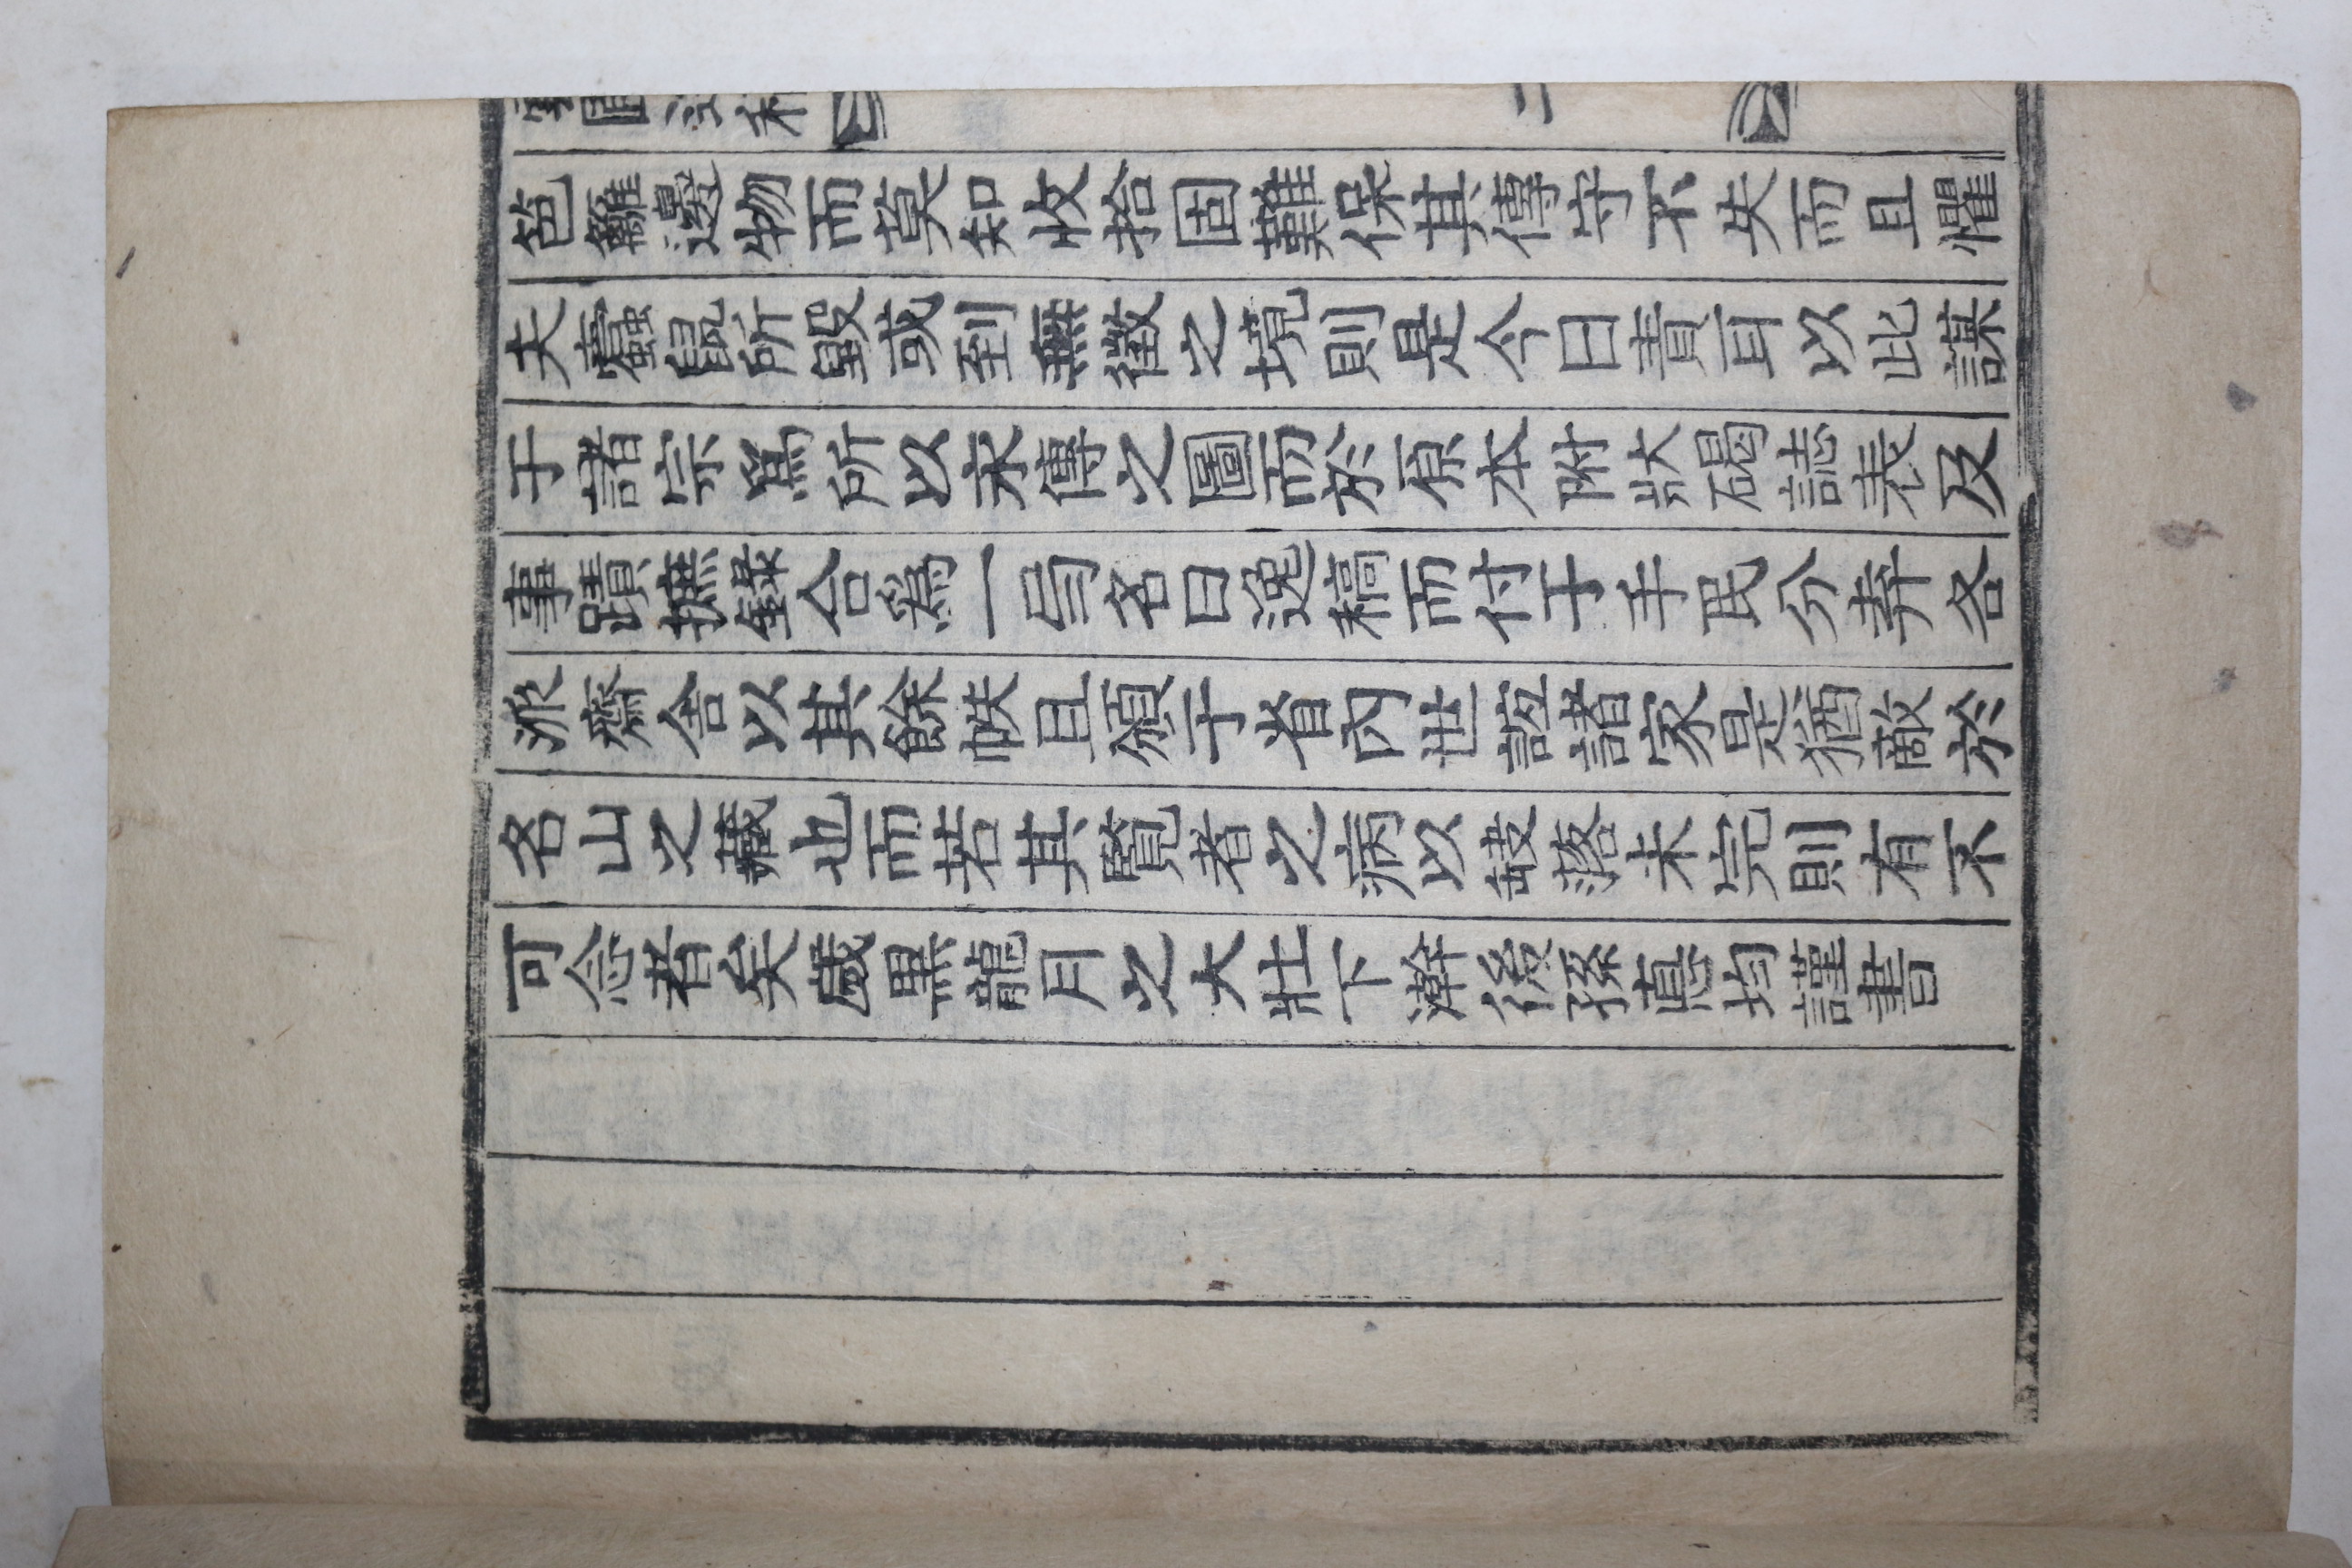 笆籬邊物而莫知收拾固難保其傳守不失而且懼
夫蠹鼠所毀或到無徵之境則是今日責耳以此謀
于諸宗爲所以永傳之圖而於原本附狀碣誌表及
事蹟摭錄合爲一局名曰逸稿而付于手民分弆各
派齋舍以其餘帙且頒于省內世誼諸家是猶敵於
名山之藏也而若其覽者之病以缺落未完則有不
可念者矣歲黑龍月之大壯下澣後孫悳均謹書
二